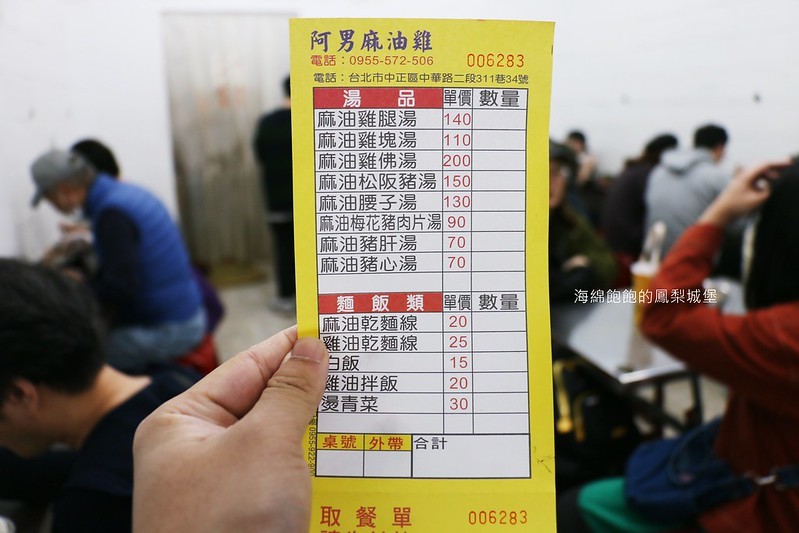 阿男麻油雞
電話：0955-572-506 006283
電話：台北市中正區中華路二段311巷34號
湯品 單價 數量
麻油雞腿湯 140
麻油雞塊湯 110
麻油雞佛湯 200
麻油松阪豬湯 150
麻油腰子湯 130
麻油梅花豬肉片湯 90
麻油豬肝湯 70
麻油豬心湯 70
麵飯類 單價 數量
麻油乾麵線 20
雞油乾麵線 25
白飯 15
雞油拌飯 20
燙青菜 30
桌號 外帶 合計
取餐單 006283
海綿飽飽的鳳梨城堡